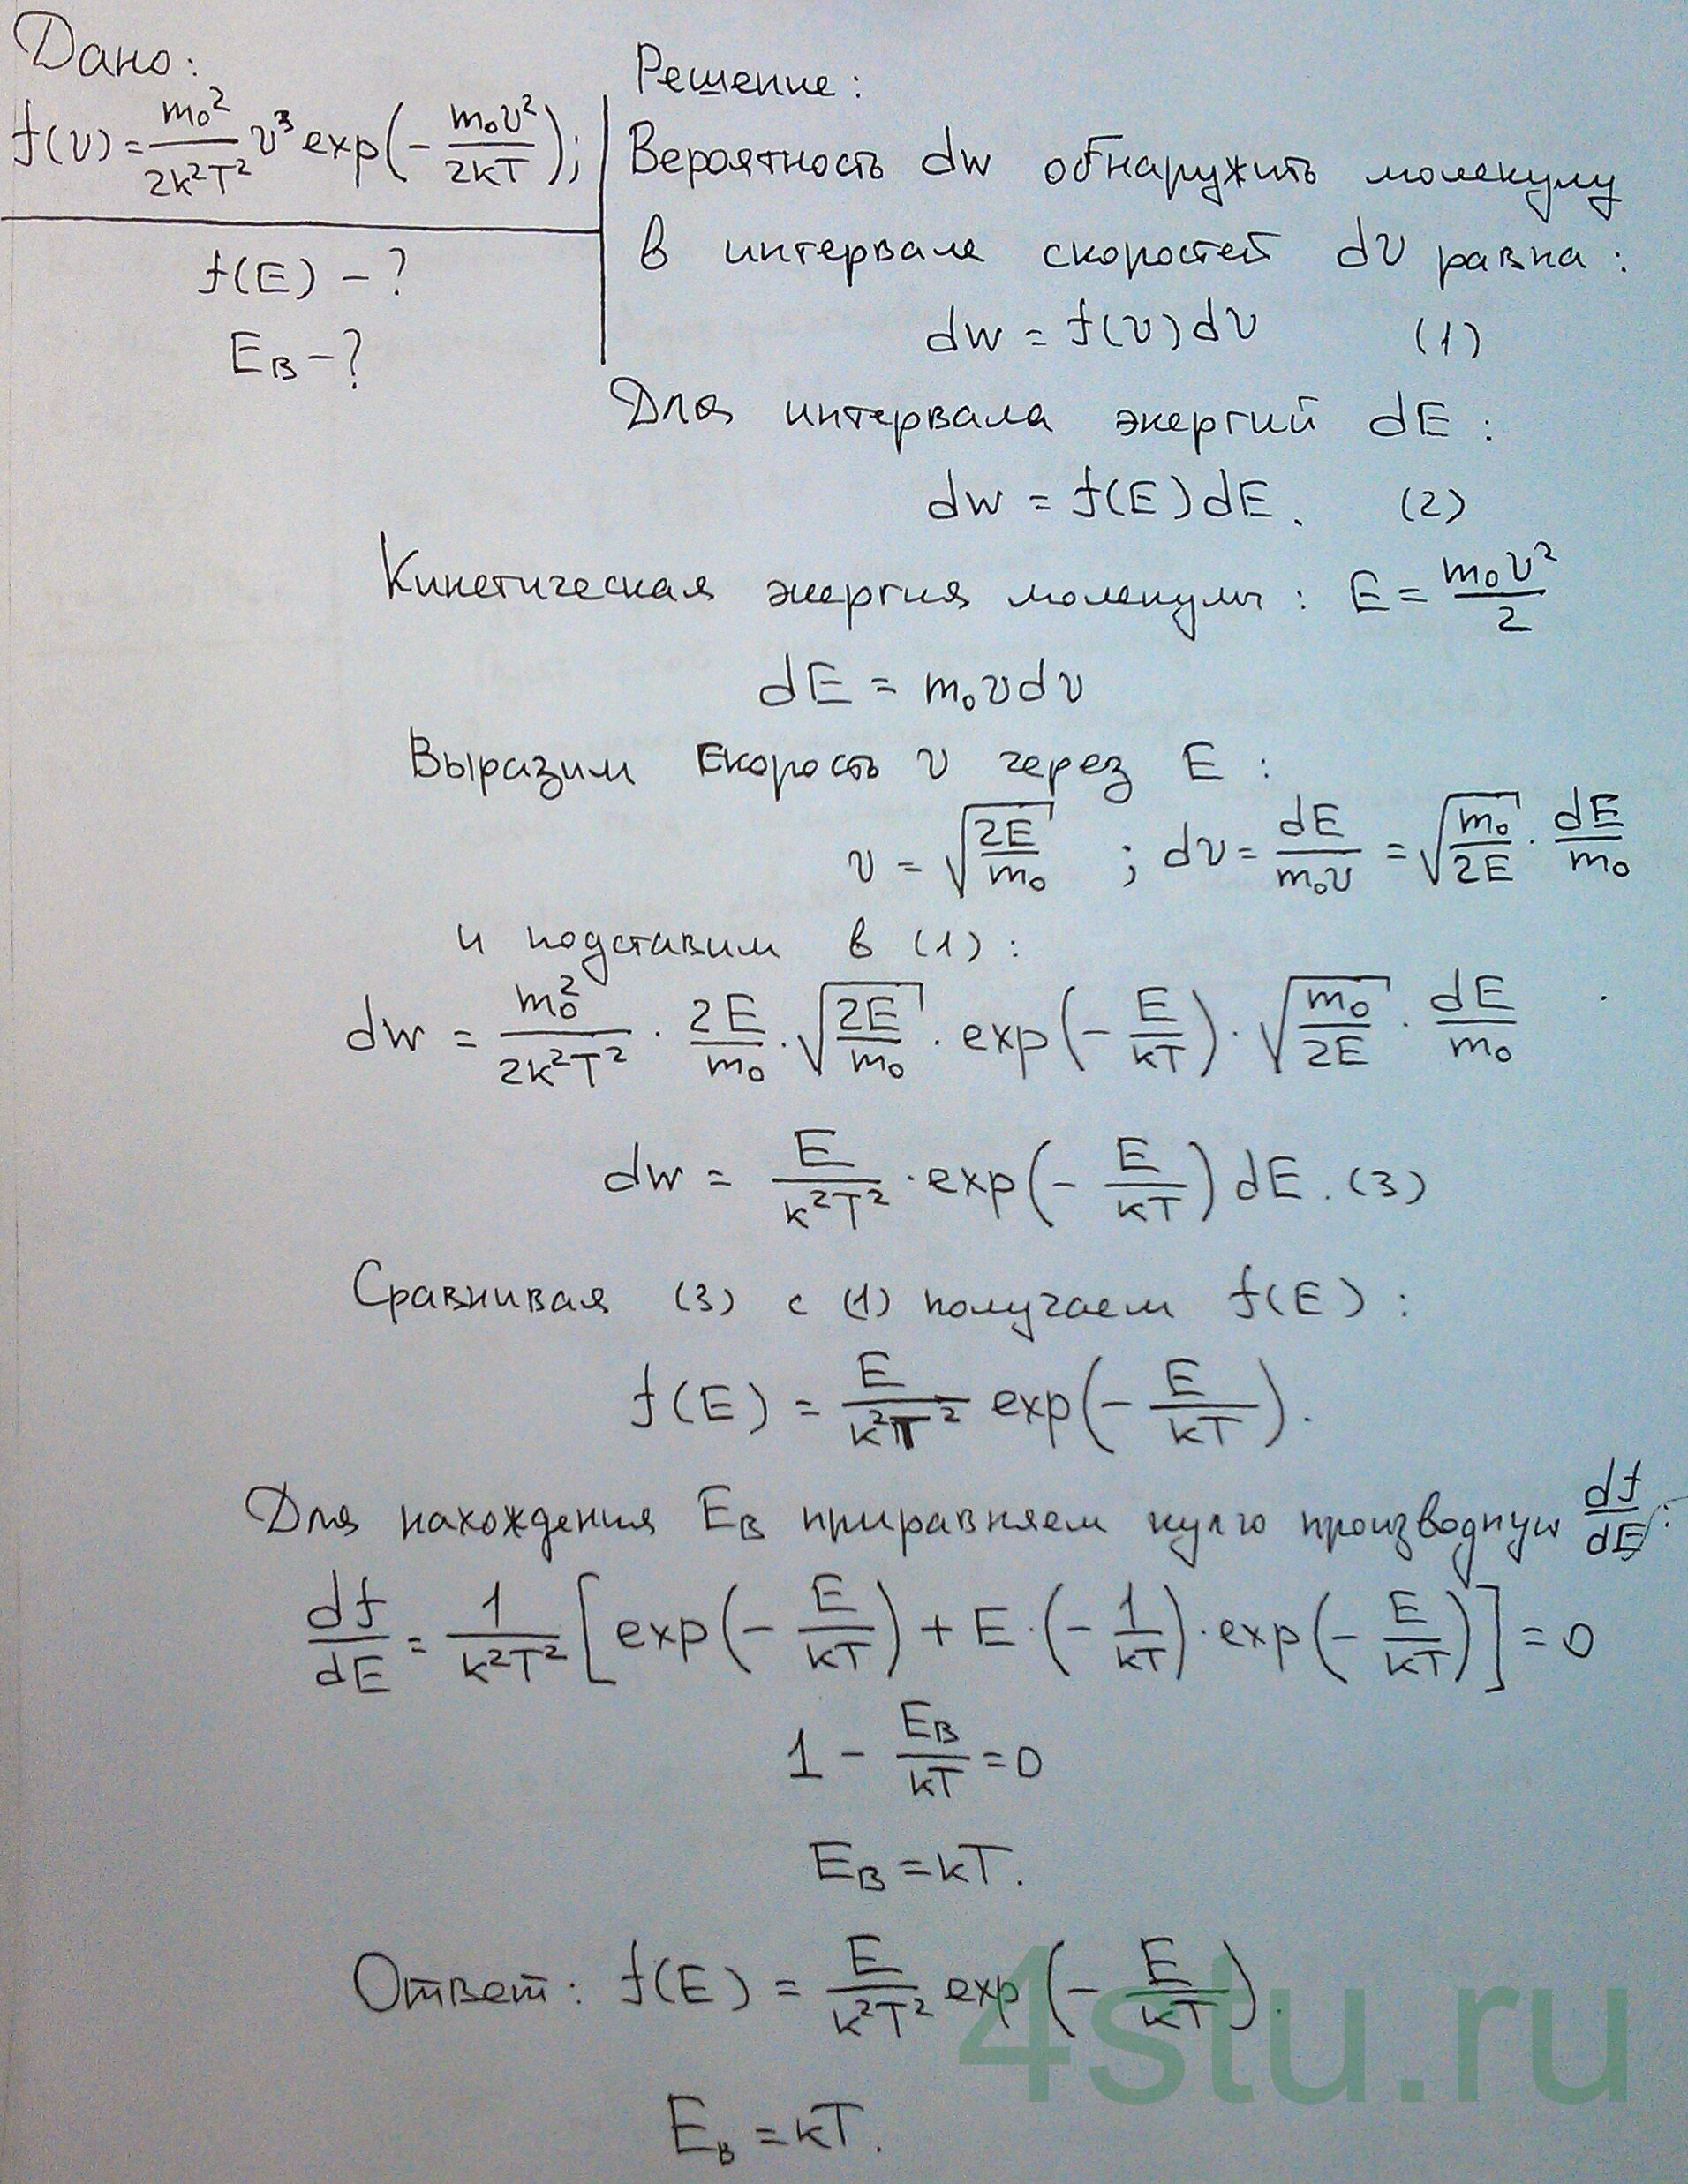 Дано:
f(v) = m₀²/2k²T² v³ exp(- m₀v²/2kT);
f(E) - ?
Eв - ?
Решение:
Вероятность dw обнаружить молекулу
в интервале скоростей dv равна:
dw = f(v)dv (1)
Для интервала энергий dE:
dw = f(E)dE. (2)
Кинетическая энергия молекулы: E = m₀v²/2
dE = m₀vdv
Выразим скорость v через E:
v = √(2E/m₀) ; dv = dE/m₀v = √(m₀/2E) · dE/m₀
и подставим в (1):
dw = m₀²/2k²T² · 2E/m₀ · √(2E/m₀) · exp(- E/kT) · √(m₀/2E) · dE/m₀
dw = E/k²T² · exp(- E/kT) dE. (3)
Сравнивая (3) с (1) получаем f(E):
f(E) = E/k²T² exp(- E/kT).
Для нахождения Eв приравняем нулю производную df/dE:
df/dE = 1/k²T² [exp(- E/kT) + E · (- 1/kT) · exp(- E/kT)] = 0
1 - Eв/kT = 0
Eв = kT.
Ответ: f(E) = E/k²T² exp(- E/kT).
Eв = kT.
4stu.ru